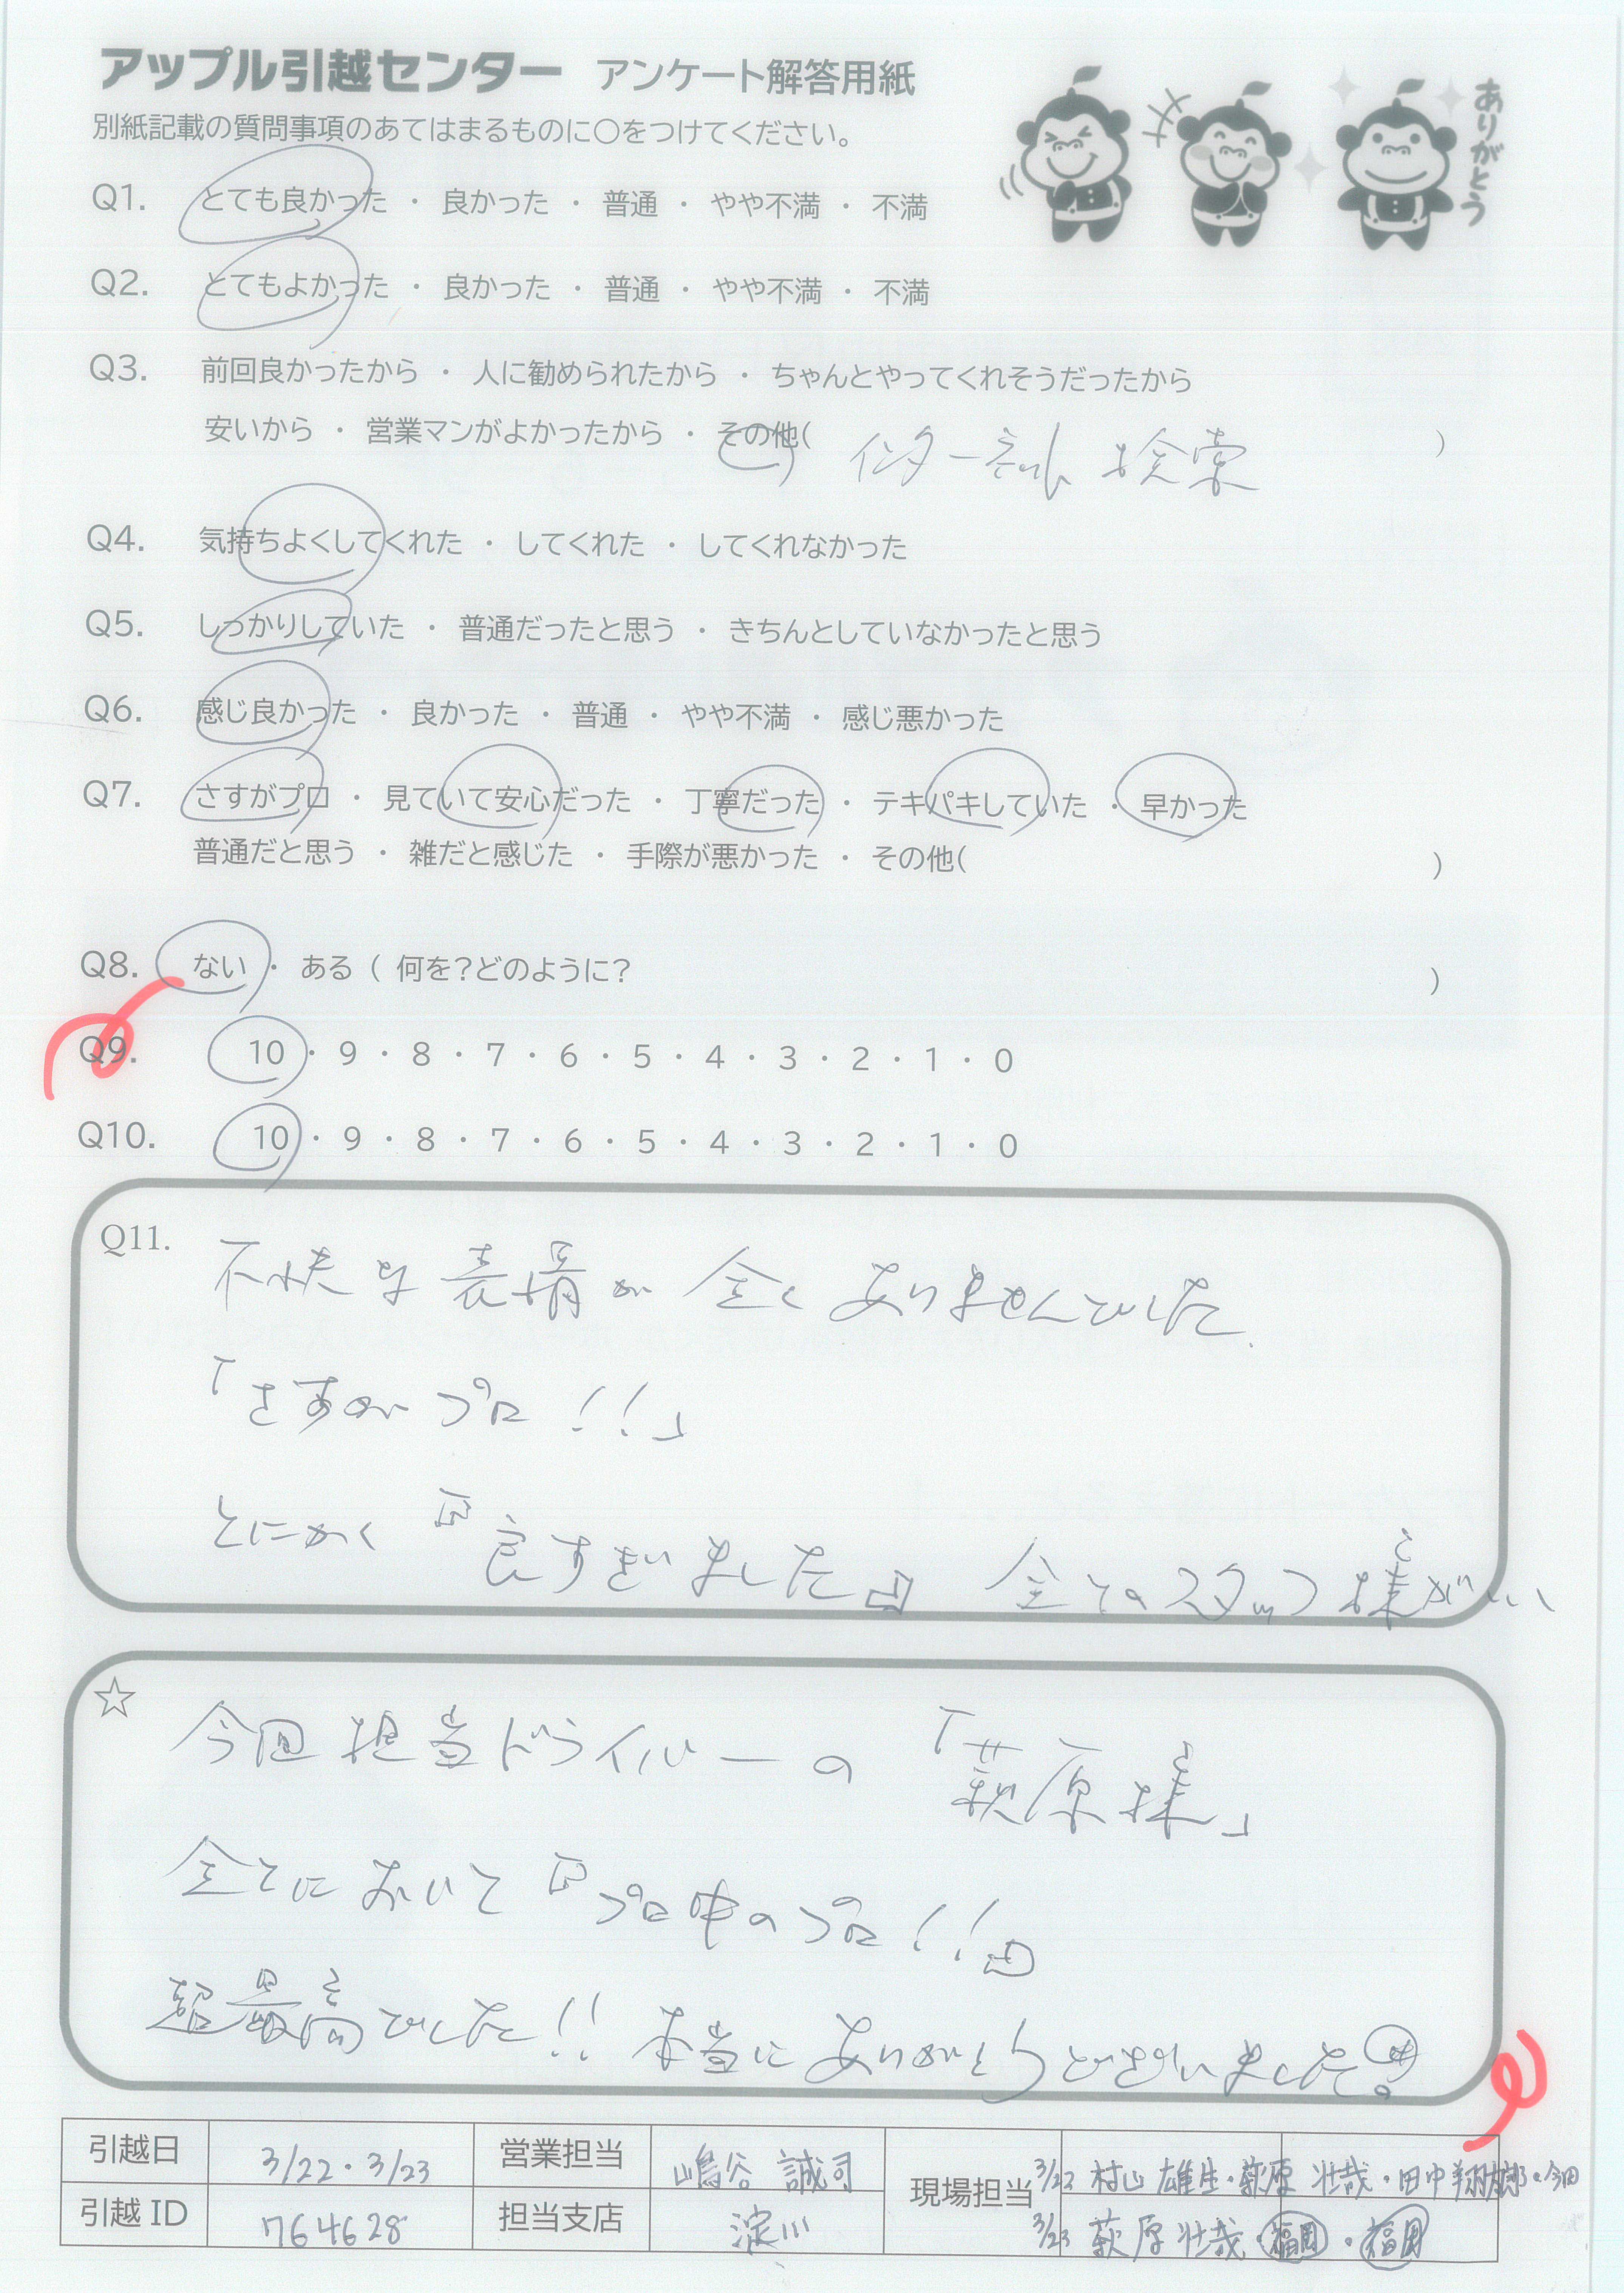 アップル引越センター アンケート解答用紙
別紙記載の質問事項のあてはまるものに○をつけてください。
ありがとう
Q1. とても良かった ・ 良かった ・ 普通 ・ やや不満 ・ 不満
Q2. とてもよかった ・ 良かった ・ 普通 ・ やや不満 ・ 不満
Q3. 前回良かったから ・ 人に勧められたから ・ ちゃんとやってくれそうだったから
安いから ・ 営業マンがよかったから ・ その他( 検索 )
Q4. 気持ちよくしてくれた ・ してくれた ・ してくれなかった
Q5. しっかりしていた ・ 普通だったと思う ・ きちんとしていなかったと思う
Q6. 感じ良かった ・ 良かった ・ 普通 ・ やや不満 ・ 感じ悪かった
Q7. さすがプロ ・ 見ていて安心だった ・ 丁寧だった ・ テキパキしていた ・ 早かった
普通だと思う ・ 雑だと感じた ・ 手際が悪かった ・ その他( )
Q8. ない ・ ある ( 何を?どのように? )
Q9. 10 ・ 9 ・ 8 ・ 7 ・ 6 ・ 5 ・ 4 ・ 3 ・ 2 ・ 1 ・ 0
Q10. 10 ・ 9 ・ 8 ・ 7 ・ 6 ・ 5 ・ 4 ・ 3 ・ 2 ・ 1 ・ 0
Q11. 不快な表情が全くありませんでした.
「さすがプロ!!」
とにかく『良すぎました』 全てのスタッフ様がいい
☆ 今回担当ドライバーの「萩原様」
全てにおいて『プロ中のプロ!!』
超最高でした!! 本当にありがとうございました
引越日 3/22・3/23 営業担当 嶋谷 誠司 現場担当 3/22 村山 雄生・萩原 壮哉・田中 翔太郎・今田
引越 ID 764628 担当支店 淀川 3/23 萩原 壮哉・福岡・福岡